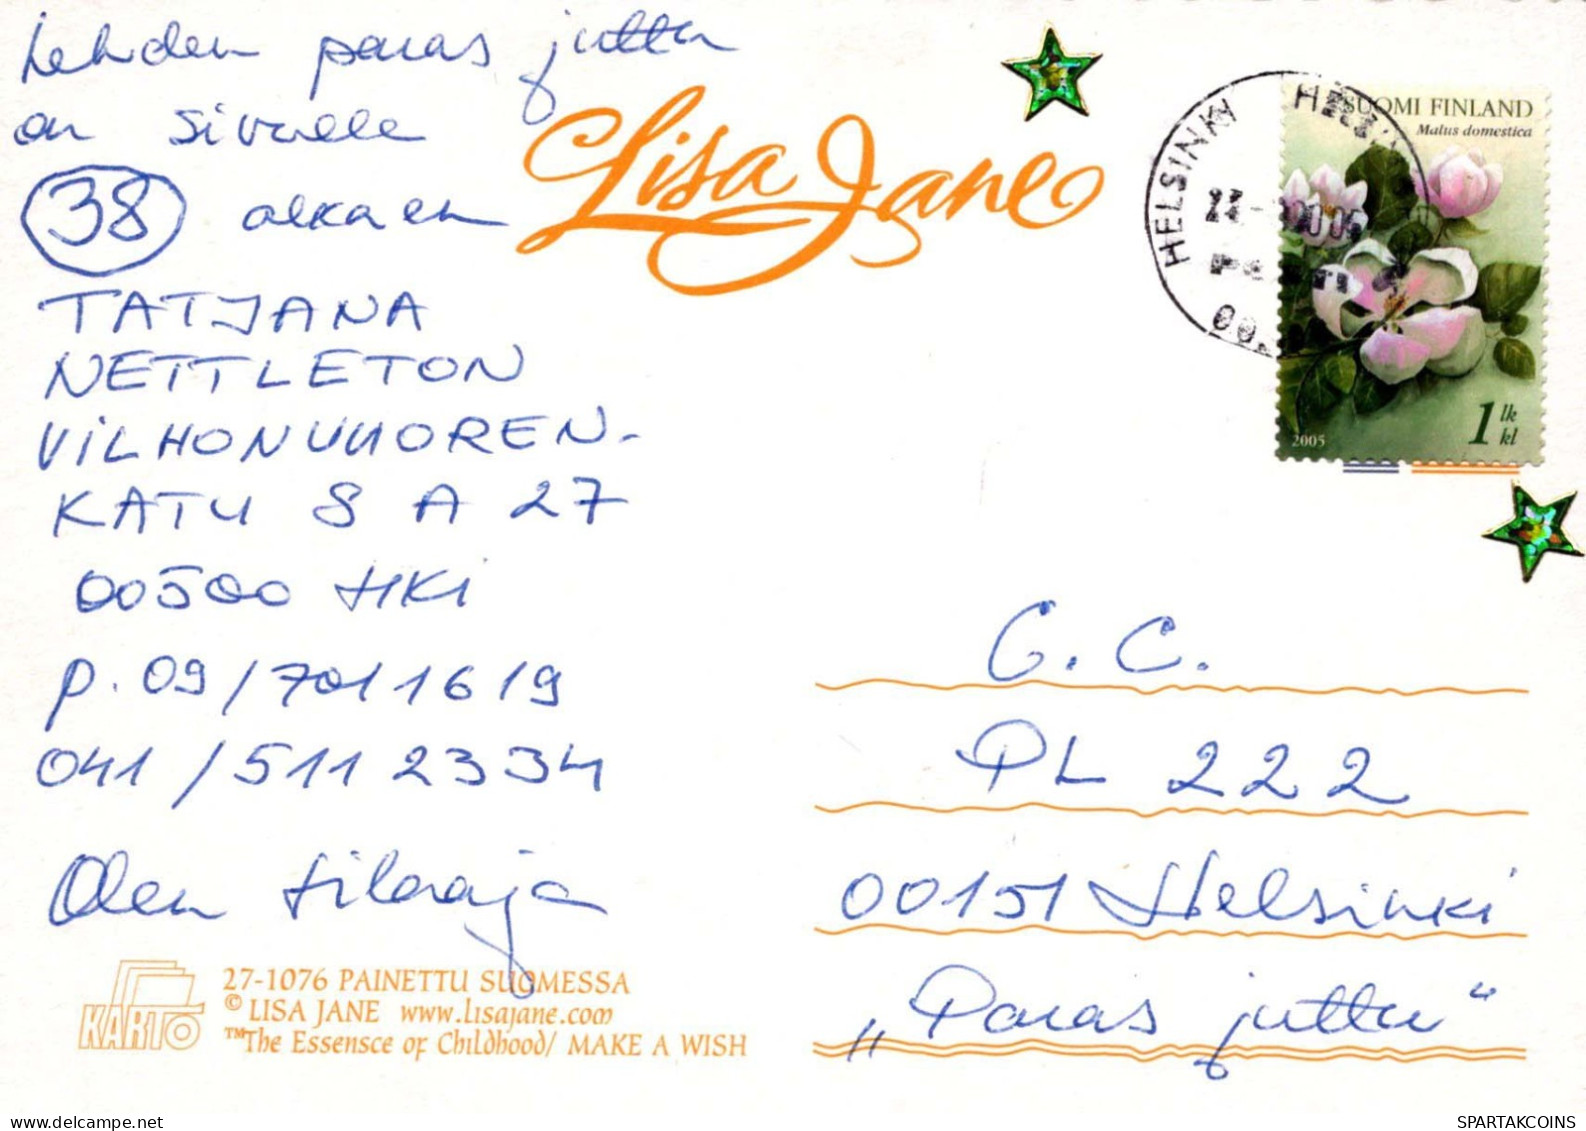 Lehden paras juttu
on sivulle
38 alkaen
TATJANA
NETTLETON
VILHONVUOREN-
KATU 8 A 27
00500 HKI
p. 09/7011619
041/5112334
Olen tilaaja
Lisa Jane
HELSINKI
SUOMI FINLAND
Malus domestica
2005
1 lk
kl
G. C.
PL 222
00151 Helsinki
„Paras juttu“
KARTO
27-1076 PAINETTU SUOMESSA
© LISA JANE www.lisajane.com
™The Essensce of Childhood/ MAKE A WISH
SPARTAKCOINS